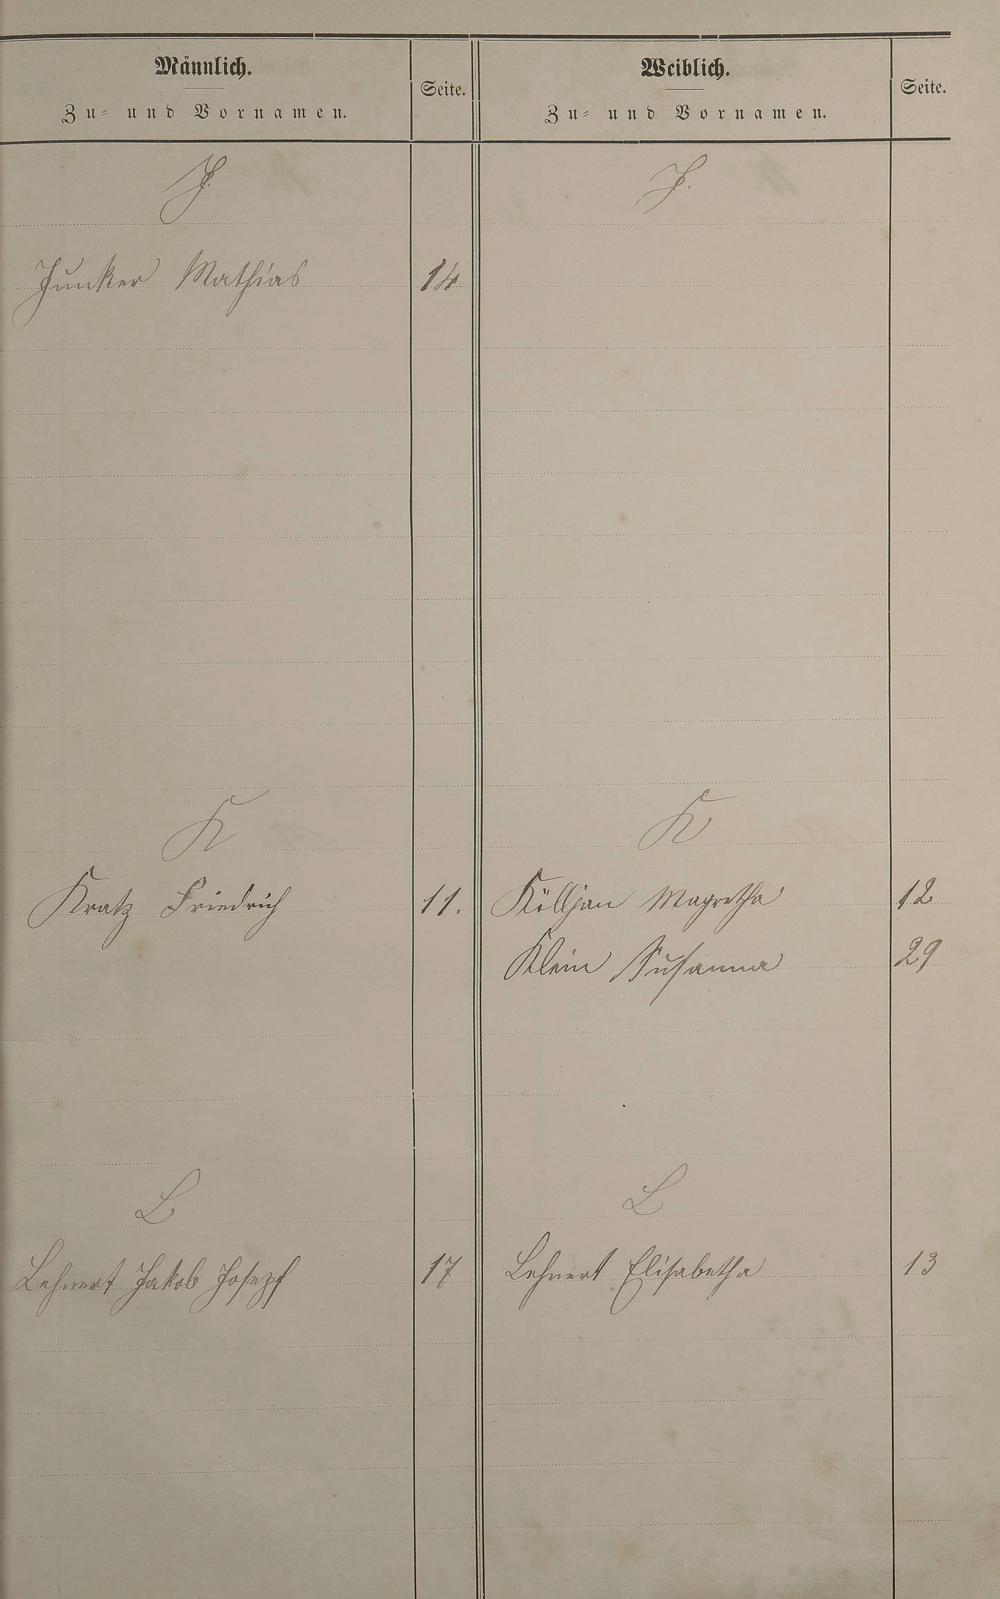 Männlich.
Zu- und Vornamen.
Seite.
Weiblich.
Zu- und Vornamen.
Seite.
J.
J.
Junker Mathias 14
K
K
Kratz Friedrich 11.
Külljan Magretha 12
Klein Susanna 29
L
L
Lehnert Jakob Josepf 17
Lehnert Elisabetha 13